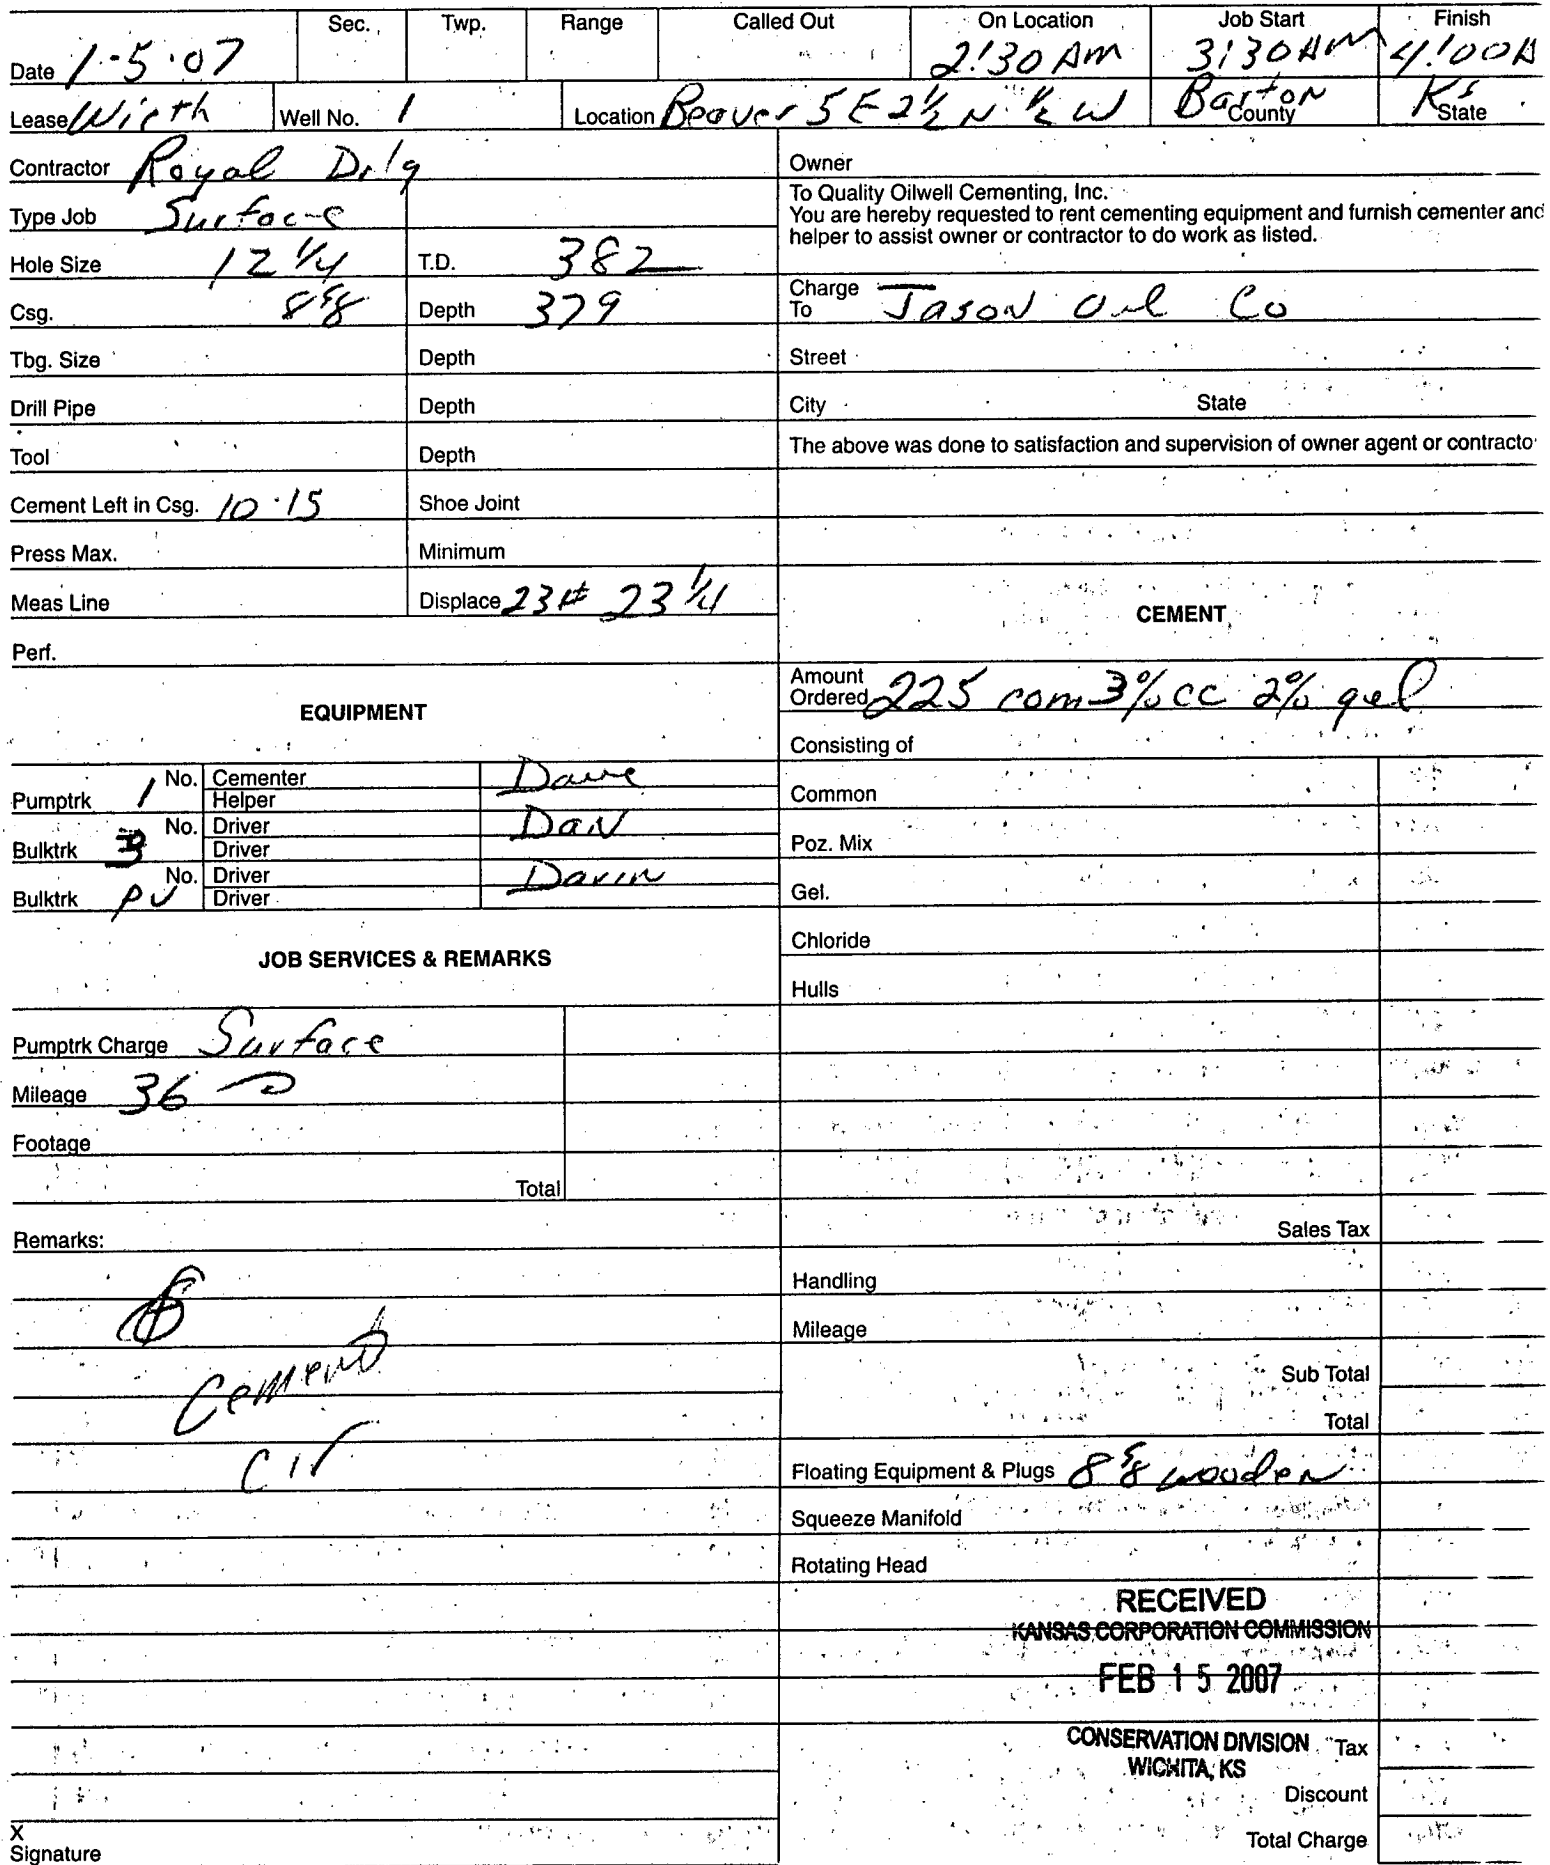 Sec. Twp. Range Called Out On Location Job Start Finish
Date 1-5-07 2:30 AM 3:30 AM 4:00 A
Lease Wirth Well No. 1 Location Beaver 5 E 2½ N ½ W Barton County Ks State
Contractor Royal Drlg
Type Job Surface
Hole Size 12 1/4 T.D. 382
Csg. 8 5/8 Depth 379
Tbg. Size Depth
Drill Pipe Depth
Tool Depth
Cement Left in Csg. 10-15 Shoe Joint
Press Max. Minimum
Meas Line Displace 23# 23 1/4
Perf.
EQUIPMENT
Pumptrk 1 No. Cementer Dave
Helper
Bulktrk 3 No. Driver Dan
Driver
Bulktrk PU No. Driver Davin
Driver
JOB SERVICES & REMARKS
Pumptrk Charge Surface
Mileage 36
Footage
Total
Remarks:
Cement
Cir
X
Signature
Owner
To Quality Oilwell Cementing, Inc.
You are hereby requested to rent cementing equipment and furnish cementer and
helper to assist owner or contractor to do work as listed.
Charge To Jason Oil Co
Street
City State
The above was done to satisfaction and supervision of owner agent or contracto
CEMENT
Amount Ordered 225 com 3%cc 2% gel
Consisting of
Common
Poz. Mix
Gel.
Chloride
Hulls
Sales Tax
Handling
Mileage
Sub Total
Total
Floating Equipment & Plugs 8 5/8 wooden
Squeeze Manifold
Rotating Head
RECEIVED
KANSAS CORPORATION COMMISSION
FEB 15 2007
CONSERVATION DIVISION
WICHITA, KS
Tax
Discount
Total Charge